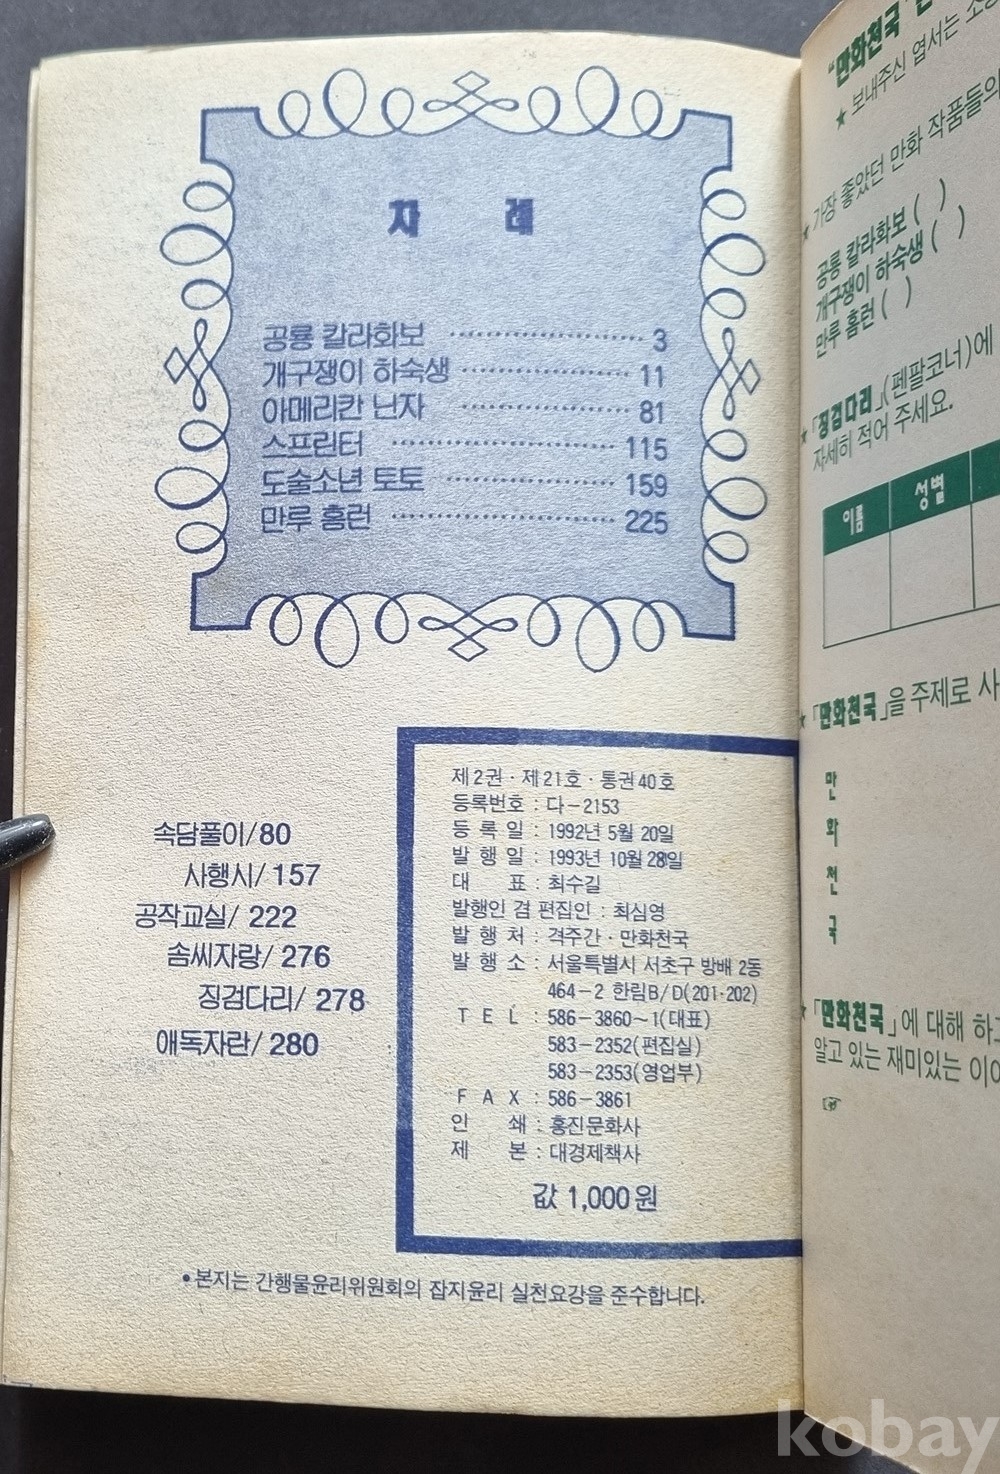 차 례
공룡 칼라화보 ························ 3
개구쟁이 하숙생 ························ 11
아메리칸 닌자 ························ 81
스프린터 ························ 115
도술소년 토토 ························ 159
만루 홈런 ························ 225
속담풀이/80
사행시/157
공작교실/222
솜씨자랑/276
징검다리/278
애독자란/280
제2권·제21호·통권40호
등록번호 : 다-2153
등 록 일 : 1992년 5월 20일
발 행 일 : 1993년 10월 28일
대 표 : 최수길
발행인 겸 편집인 : 최심영
발 행 처 : 격주간·만화천국
발 행 소 : 서울특별시 서초구 방배 2동
464-2 한림B/D(201·202)
T E L : 586-3860~1(대표)
583-2352(편집실)
583-2353(영업부)
F A X : 586-3861
인 쇄 : 홍진문화사
제 본 : 대경제책사
값 1,000원
•본지는 간행물윤리위원회의 잡지윤리 실천요강을 준수합니다.
"만화천국"
★ 보내주신 엽서는
★ 가장 좋았던 만화 작품들의
공룡 칼라화보 ( )
개구쟁이 하숙생 ( )
만루 홈런 ( )
★ 「징검다리」(펜팔코너)에
자세히 적어 주세요.
이름 성별
★ 「만화천국」을 주제로
만
화
천
국
★ 「만화천국」에 대해
알고 있는 재미있는
☞
kobay